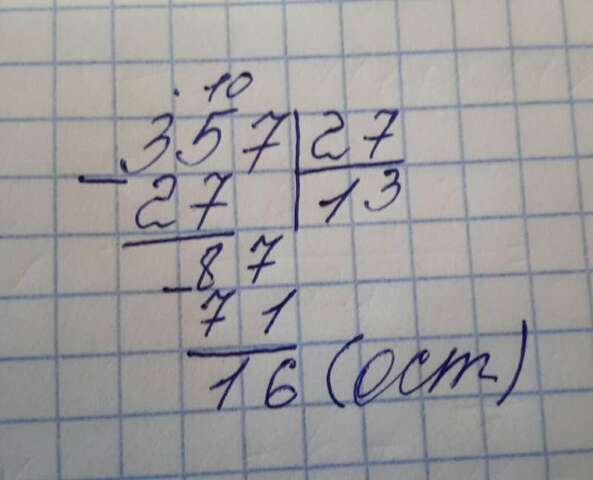 . 10
357 27
- 27 13
- 87
71
16 (ост)